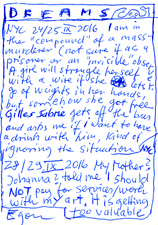 DREAMS
NYC 24/25 IX 2016 I am in
the "compound" of a mass-
murderer (not sure if as a
prisoner or an invisible observer)
A girl will strangle herself
with a wire if she lets
go of weights in her hands
but somehow she got free
Gilles Sabrie gets off the bus
and asks me if I want to have
a drink with him, kind of
ignoring the situation
28/29 IX 2016 My Mother?
Johanna? told me I should
NOT pay for services/work
with my art, it is getting
too valuable.
Egon